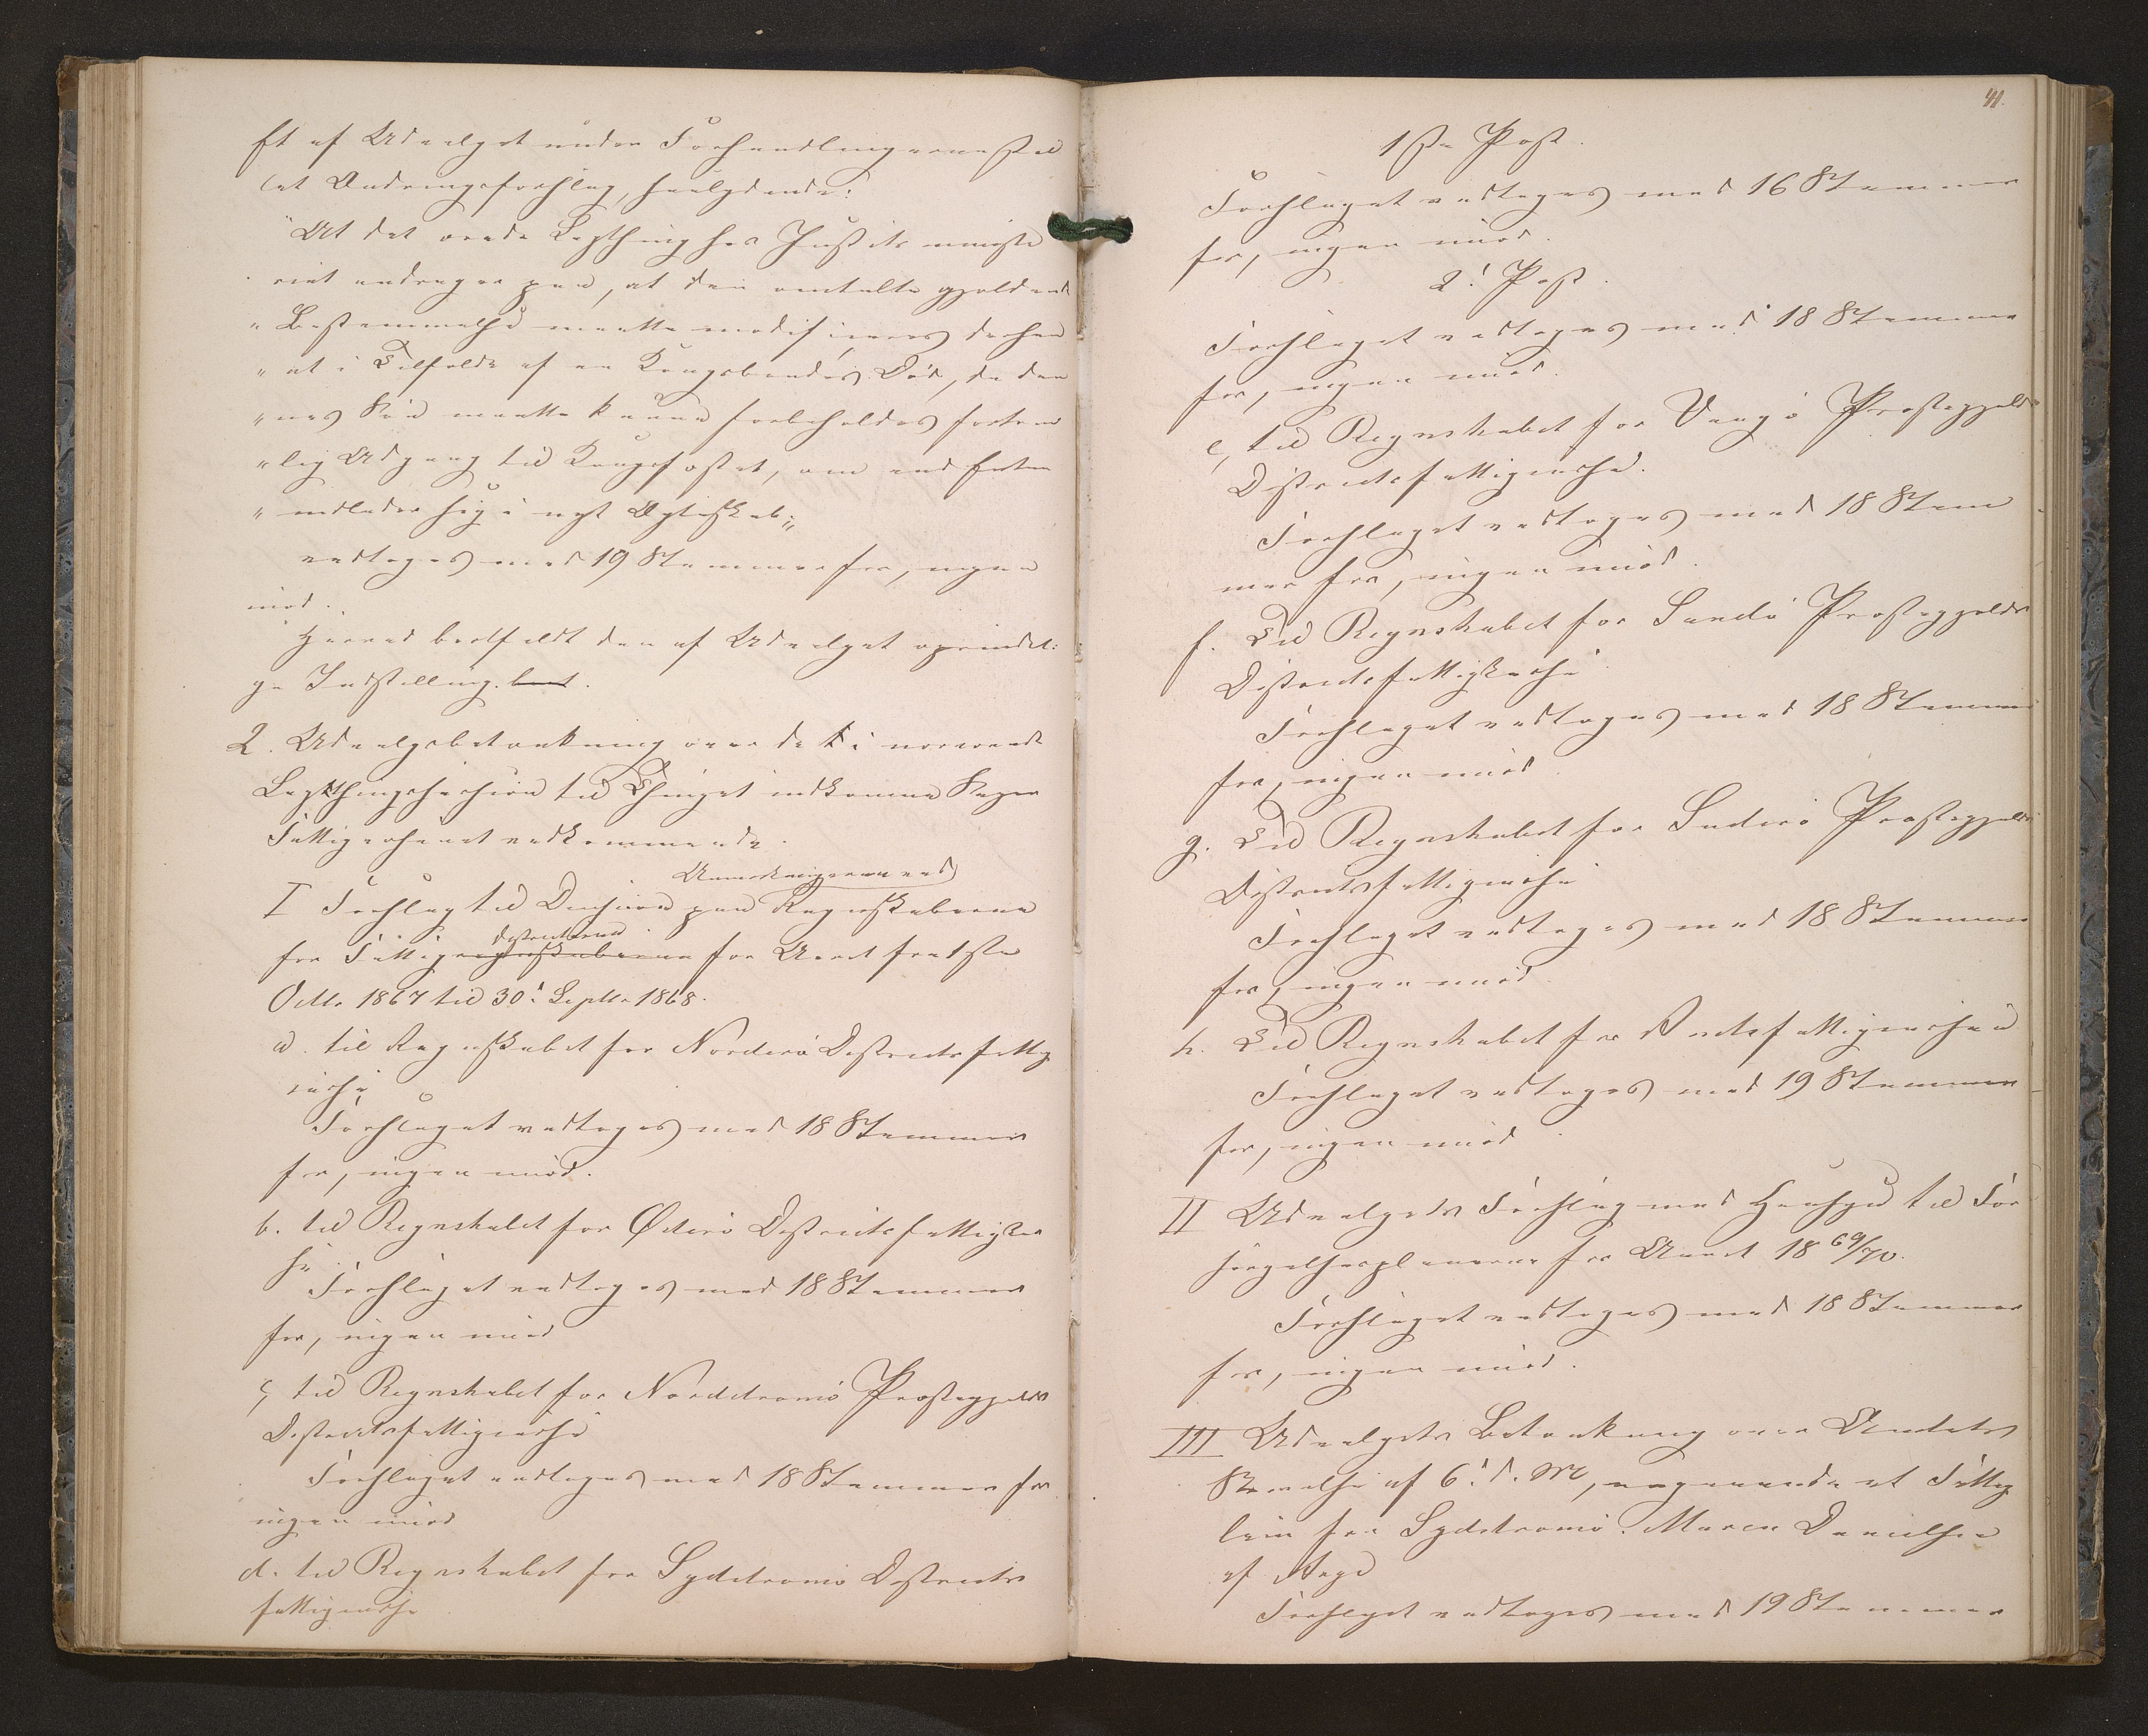 Et af Udvalget under Forhandlingerne stil
let Ændringsforslag, saalydende:
"At det ærede Lagthing hos Justitsministe
riet andrager paa, at den omtalte gjældende
" Bestemmelse maatte modificeres derhen
" at i Tilfælde af en Kongsbondes Død, da den
" nes Søn maatte kunne forbeholdes fortrin
" lig Adgang til Kongsfæstet, om end Enken
" indlader sig i nyt Ægteskab;"
vedtoges med 19 Stemmer for, ingen
imod.
Herved bortfaldt den af Udvalget oprindeli:
ge Indstilling. bort.
2. Udvalgsbetænkning over de i nærværende
Lagthingssession til Thinget indkomne Sager
Fattigvæsenet vedkommende.
Anmærkningerne ved
I Forslag til Decision paa Regnskaberne
districterne
for Fattigregnskaberne for Aaret fra 1ste
Octbr 1867 til 30' Septbr 1868.
a. til Regnskabet for Norderø Districtsfattig
væsen
Forslaget vedtoges med 18 Stemmer
for, ingen imod.
b. til Regnskabet for Østerø Districtsfattigvæ
sen
Forslaget vedtoges med 18 Stemmer
for, ingen imod
c, til Regnskabet for Nordstrømø Præstegjelds
Districtsfattigvæsen
Forslaget vedtoges med 18 Stemmer for
ingen imod
d. til Regnskabet for Sydstrømø Districts
fattigvæsen
41.
1ste Post.
Forslaget vedtoges med 16 Stemmer
for, ingen imod.
2' Post.
Forslaget vedtoges med 18 Stemmer
for, ingen imod.
e, til Regnskabet for Vaagø Præstegjelds
Districtsfattigvæsen.
Forslaget vedtoges med 18 Stem
mer for, ingen imod.
f. Til Regnskabet for Sandø Præstegjelds
Districtsfattigvæsen
Forslaget vedtoges med 18 Stemmer
for, ingen imod.
g. Til Regnskabet for Suderø Præstegjelds
Districtsfattigvæsen
Forslaget vedtoges med 18 Stemmer
for, ingen imod
h. Til Regnskabet for Amtsfattigvæsenet
Forslaget vedtoges med 19 Stemmer
for, ingen imod
II Udvalgets Forslag med Hensyn til For
sørgelsesplanerne for Aaret 18 69/70.
Forslaget vedtoges med 18 Stemmer
for, ingen imod.
III Udvalgets Betænkning over Amtets
Skrivelse af 6' d. M, angaaende et Fattig
lem fra Sydstrømø. Maren Danielsen
af
Forslaget vedtoges med 19 Stemmer